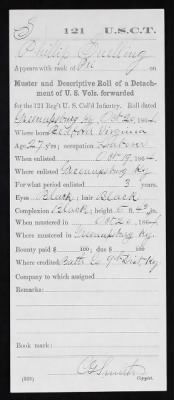 S 121 U.S.C.T.
Phillip
Appears with rank of Pvt on
Muster and Descriptive Roll of a Detach-
ment of U. S. Vols. forwarded
for the 121 Reg't U. S. Col'd Infantry. Roll dated
Greenupsburg Ky Oct 20, 1864.
Where born Bedford Virginia
Age 27 y'rs; occupation
When enlisted Oct 19, 1864.
Where enlisted Greenupsburg Ky
For what period enlisted 3 years.
Eyes Black; hair Black
Complexion Black; height 5 ft. in.
When mustered in Oct 20, 1864.
Where mustered in Greenupsburg Ky.
Bounty paid $ 100; due $ 100
Where credited Co 9th Dist Ky
Company to which assigned
Remarks:
Book mark:
Smith
(339) Copyist.